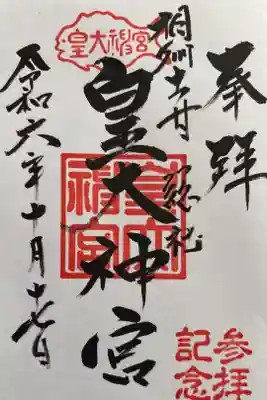 奉拝
参拝
記念
相州土甘
総社
皇大神宮
皇大神宮
皇大神宮
令和六年十月十七日